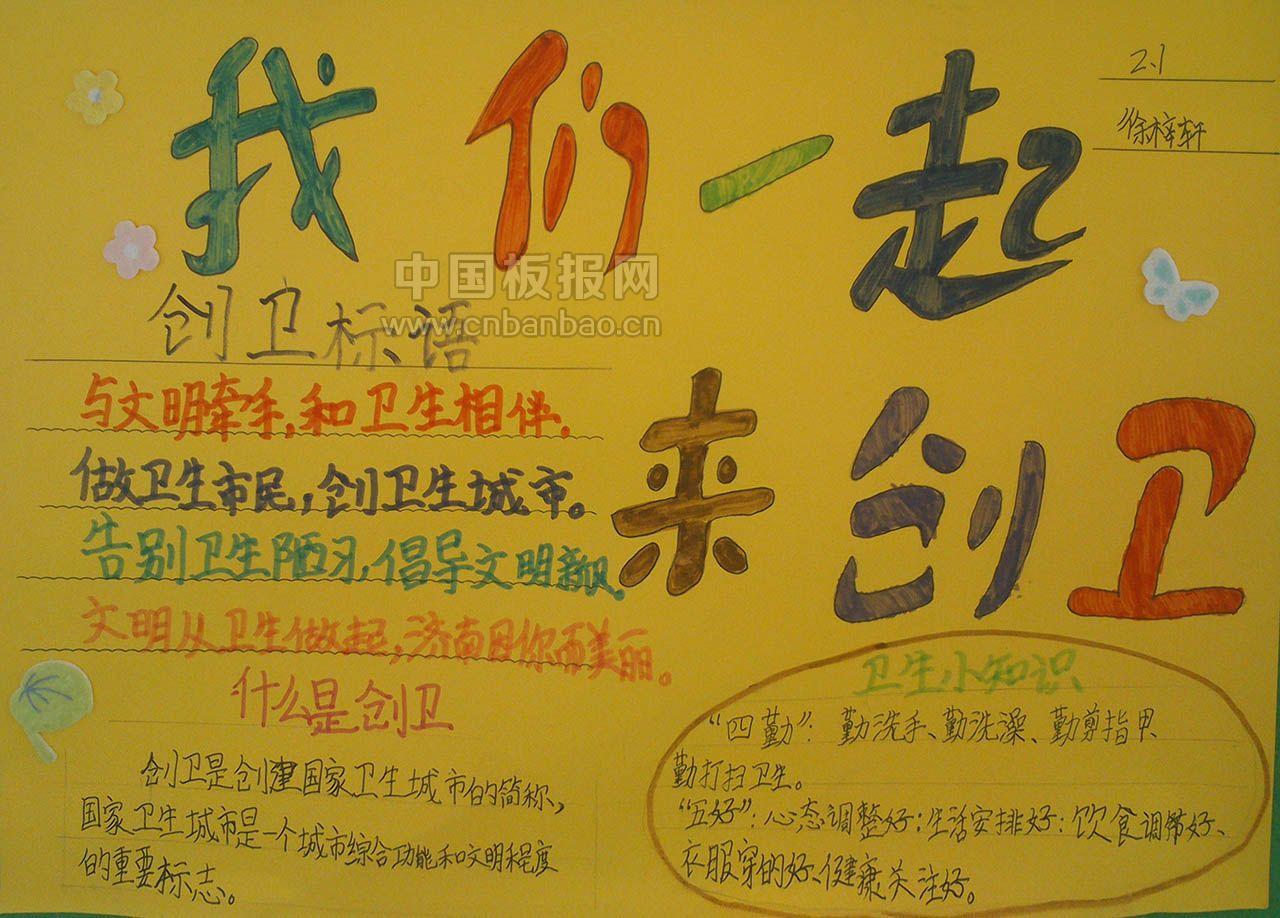 我们一起
来创卫
2.1
徐梓轩
中国板报网
www.cnbanbao.cn
创卫标语
与文明牵手,和卫生相伴.
做卫生市民,创卫生城市。
告别卫生陋习,倡导文明新风.
文明从卫生做起,济南因你而美丽。
什么是创卫
创卫是创建国家卫生城市的简称,
国家卫生城市是一个城市综合功能和文明程度
的重要标志。
卫生小知识
“四勤”: 勤洗手、勤洗澡、勤剪指甲、
勤打扫卫生。
“五好”:心态调整好;生活安排好:饮食调节好、
衣服穿的好、健康关注好。